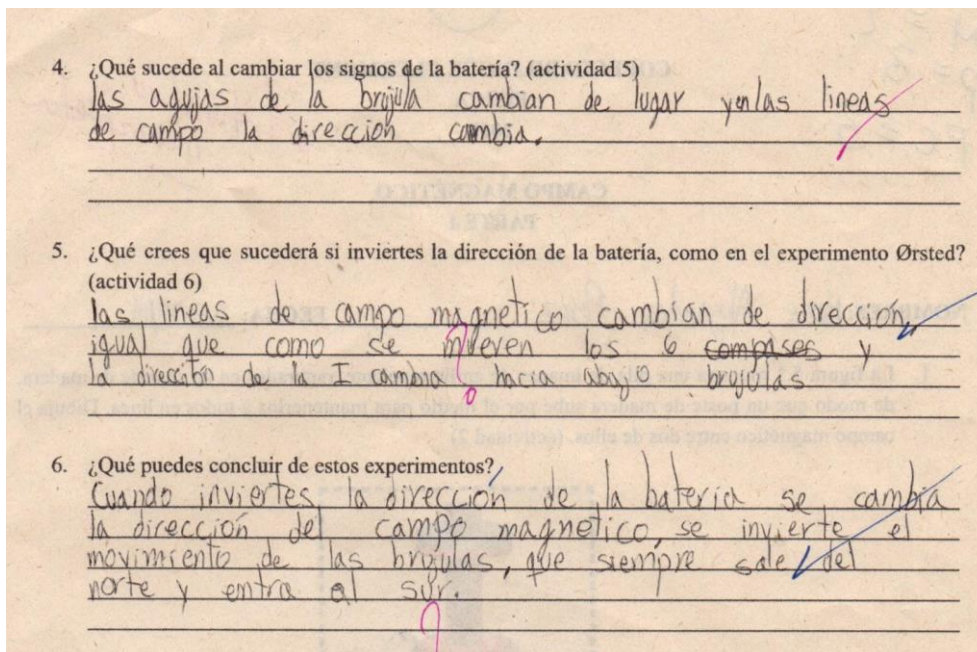 4. ¿Qué sucede al cambiar los signos de la batería? (actividad 5)
las agujas de la brujula cambian de lugar y en las lineas
de campo la dirección cambia.
5. ¿Qué crees que sucederá si inviertes la dirección de la batería, como en el experimento Ørsted?
(actividad 6)
las lineas de campo magnetico cambian de dirección,
igual que como se mueven los 6 compases y
la dirección de la I cambia hacia abajo brujulas
6. ¿Qué puedes concluir de estos experimentos?
Cuando inviertes la dirección de la bateria se cambia
la dirección del campo magnetico, se invierte el
movimiento de las brujulas, que siempre sale del
norte y entra al sur.